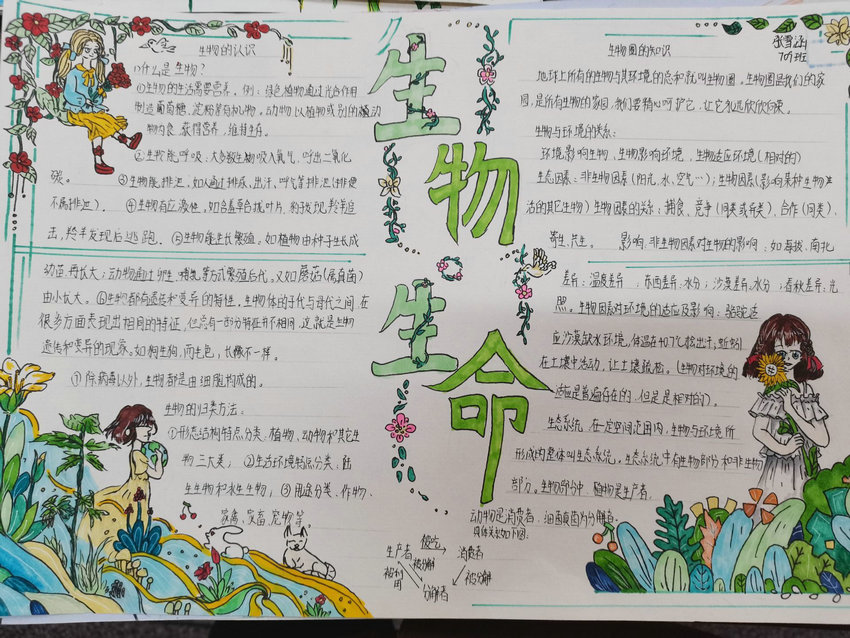 生物的认识
①什么是生物?
①生物的生活需要营养。例:绿色植物通过光合作用
制造葡萄糖,淀粉等有机物。动物以植物或别的动
物为食,获得营养,维持生存。
②生物能呼吸:大多数生物吸入氧气,呼出二氧化
碳。 ③生物能排泄:如人通过排尿、出汗、呼气等排泄(排便
不属排泄)。 ④生物有应激性,如含羞草合拢叶片,豹找现羚羊追
击,羚羊发现后逃跑。⑤生物能生长繁殖。如植物由种子生长成
幼苗再长大;动物通过卵生、哺乳等方式繁殖后代。又如蘑菇(属真菌)
由小长大。⑥生物都有遗传和变异的特性,生物体的子代与母代之间,在
很多方面表现出相同的特征,但总有一部分特征并不相同,这就是生物
遗传和变异的现象。如狗生狗,而毛色,长像不一样。
⑦除病毒以外,生物都是由细胞构成的。
生物的归类方法:
①形态结构特点分类,植物、动物和其它生
物三大类;②生活环境特点分类,陆
生生物和水生生物;③用途分类,作物、
家禽、家畜、宠物等。
生物
生命
709班
生物圈的知识
地球上所有的生物与其环境的总和就叫生物圈,生物圈是我们的家
园,是所有生物的家园,我们要精心呵护它,让它永远欣欣向荣。
生物与环境的关系:
环境影响生物、生物影响环境、生物适应环境(相对的)
生态因素:非生物因素(阳光,水,空气…);生物因素(影响某种生物生
活的其它生物)生物因素的关系:捕食、竞争(同类或异类)、合作(同类)、
寄生、共生。 影响,非生物因素对生物的影响:如海拔,南北
差异:温度差异 ,东西差异:水分;沙漠差异:水分;春秋差异:光
照。生物因素对环境的适应及影响:骆驼适
应沙漠缺水环境,体温在40.7℃松出汗,蚯蚓
在土壤中活动,让土壤疏松。(生物对环境的
适应是普遍存在的,但是是相对的)。
生态系统,在一定空间范围内,生物与环境所
形成的整体叫生态系统。生态系统中有生物部分和非生物
部分。生物部分中,植物是生产者,
动物是消费者,细菌真菌为分解者。
具体关系如下图:
生产者 被吃 消费者
被分解
被利用
被分解
分解者